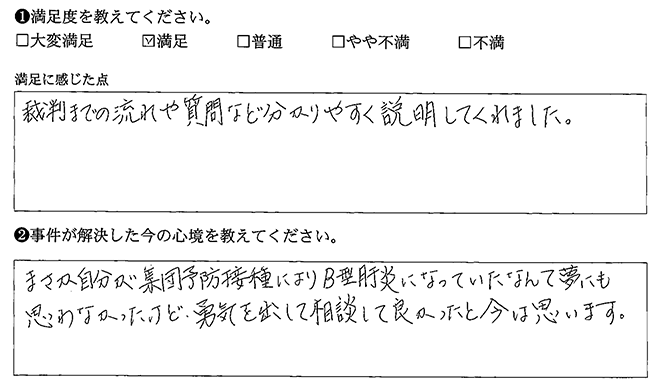 ❶満足度を教えてください。
☐大変満足 ☑満足 ☐普通 ☐やや不満 ☐不満
満足に感じた点
裁判までの流れや質問など分かりやすく説明してくれました。
❷事件が解決した今の心境を教えてください。
まさか自分が集団予防接種によりB型肝炎になっていたなんて夢にも
思わなかったけど、勇気を出して相談して良かったと今は思います。